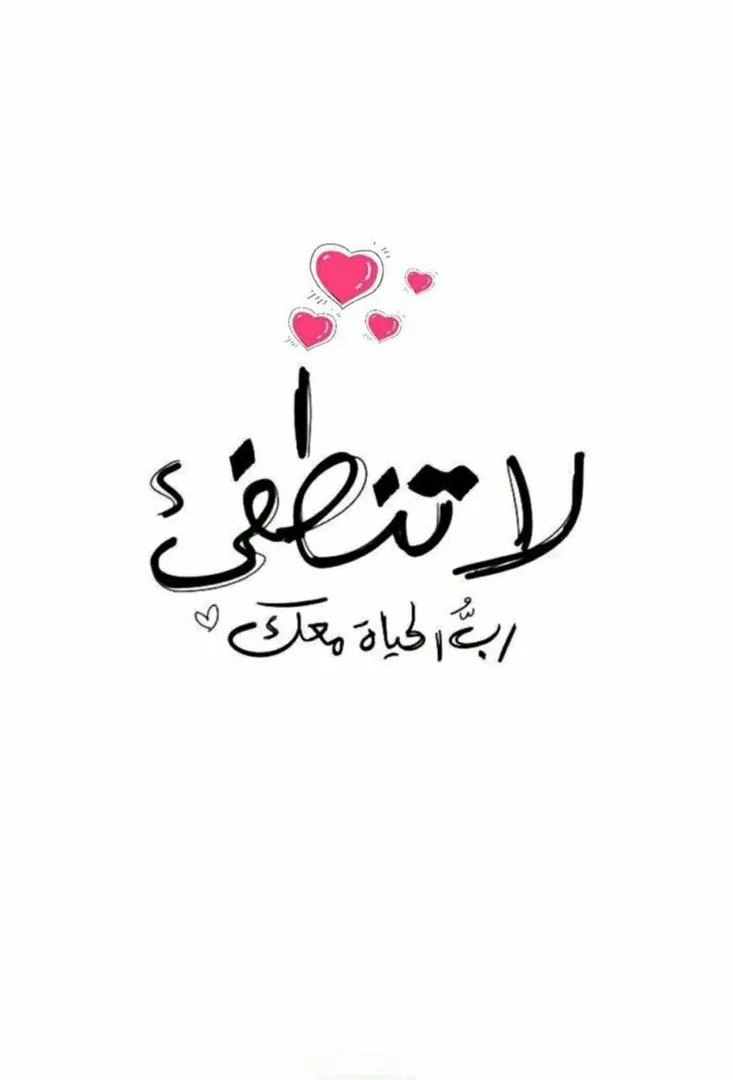 لا تنطفئ
ربُّ الحياة معك